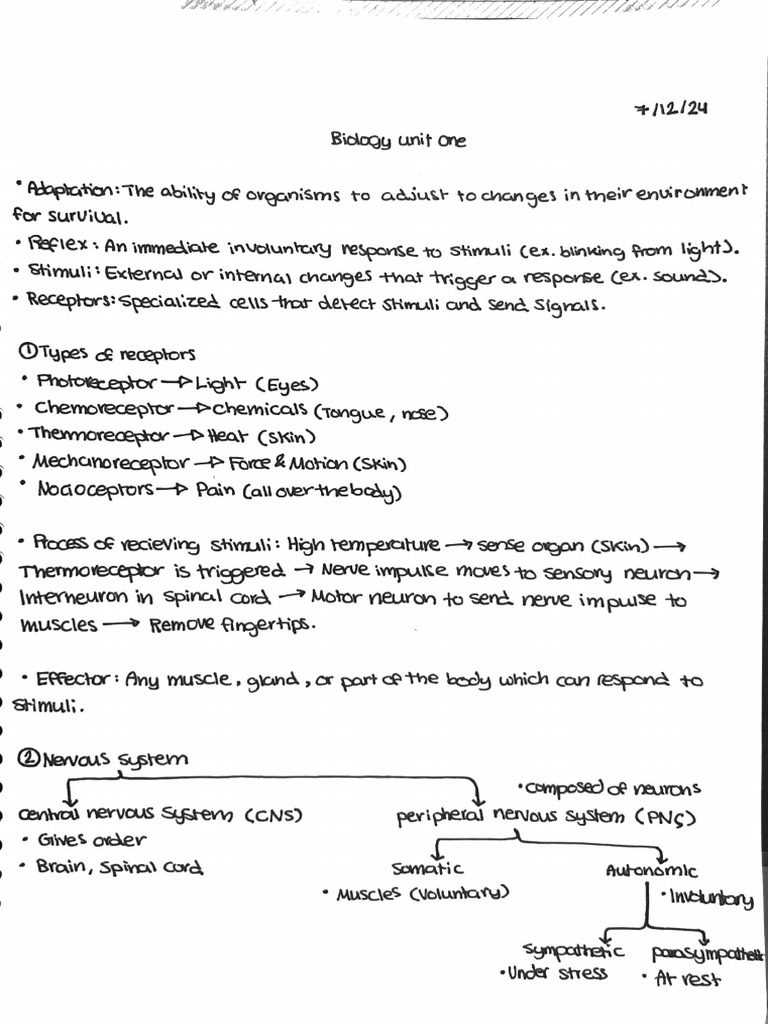 7/12/24
Biology unit one
• Adaptation: The ability of organisms to adjust to changes in their environment
for survival.
• Reflex: An immediate involuntary response to stimuli (ex. blinking from light).
• Stimuli: External or internal changes that trigger a response (ex. sound).
• Receptors: Specialized cells that detect stimuli and send signals.
① Types of receptors
• Photoreceptor → Light (Eyes)
• Chemoreceptor → chemicals (Tongue, nose)
• Thermoreceptor → Heat (Skin)
• Mechanoreceptor → Force & Motion (Skin)
• Nocioceptors → Pain (all over the body)
• Process of recieving stimuli: High temperature → sense organ (skin) →
Thermoreceptor is triggered → Nerve impulse moves to sensory neuron →
Interneuron in spinal cord → Motor neuron to send nerve impulse to
muscles → Remove fingertips.
• Effector: Any muscle, gland, or part of the body which can respond to
stimuli.
② Nervous system
• composed of neurons
central nervous system (CNS) peripheral nervous system (PNS)
• Gives order
• Brain, Spinal cord Somatic Autonomic
• Muscles (voluntary) • Involuntary
sympathetic parasympathetic
• Under stress • At rest